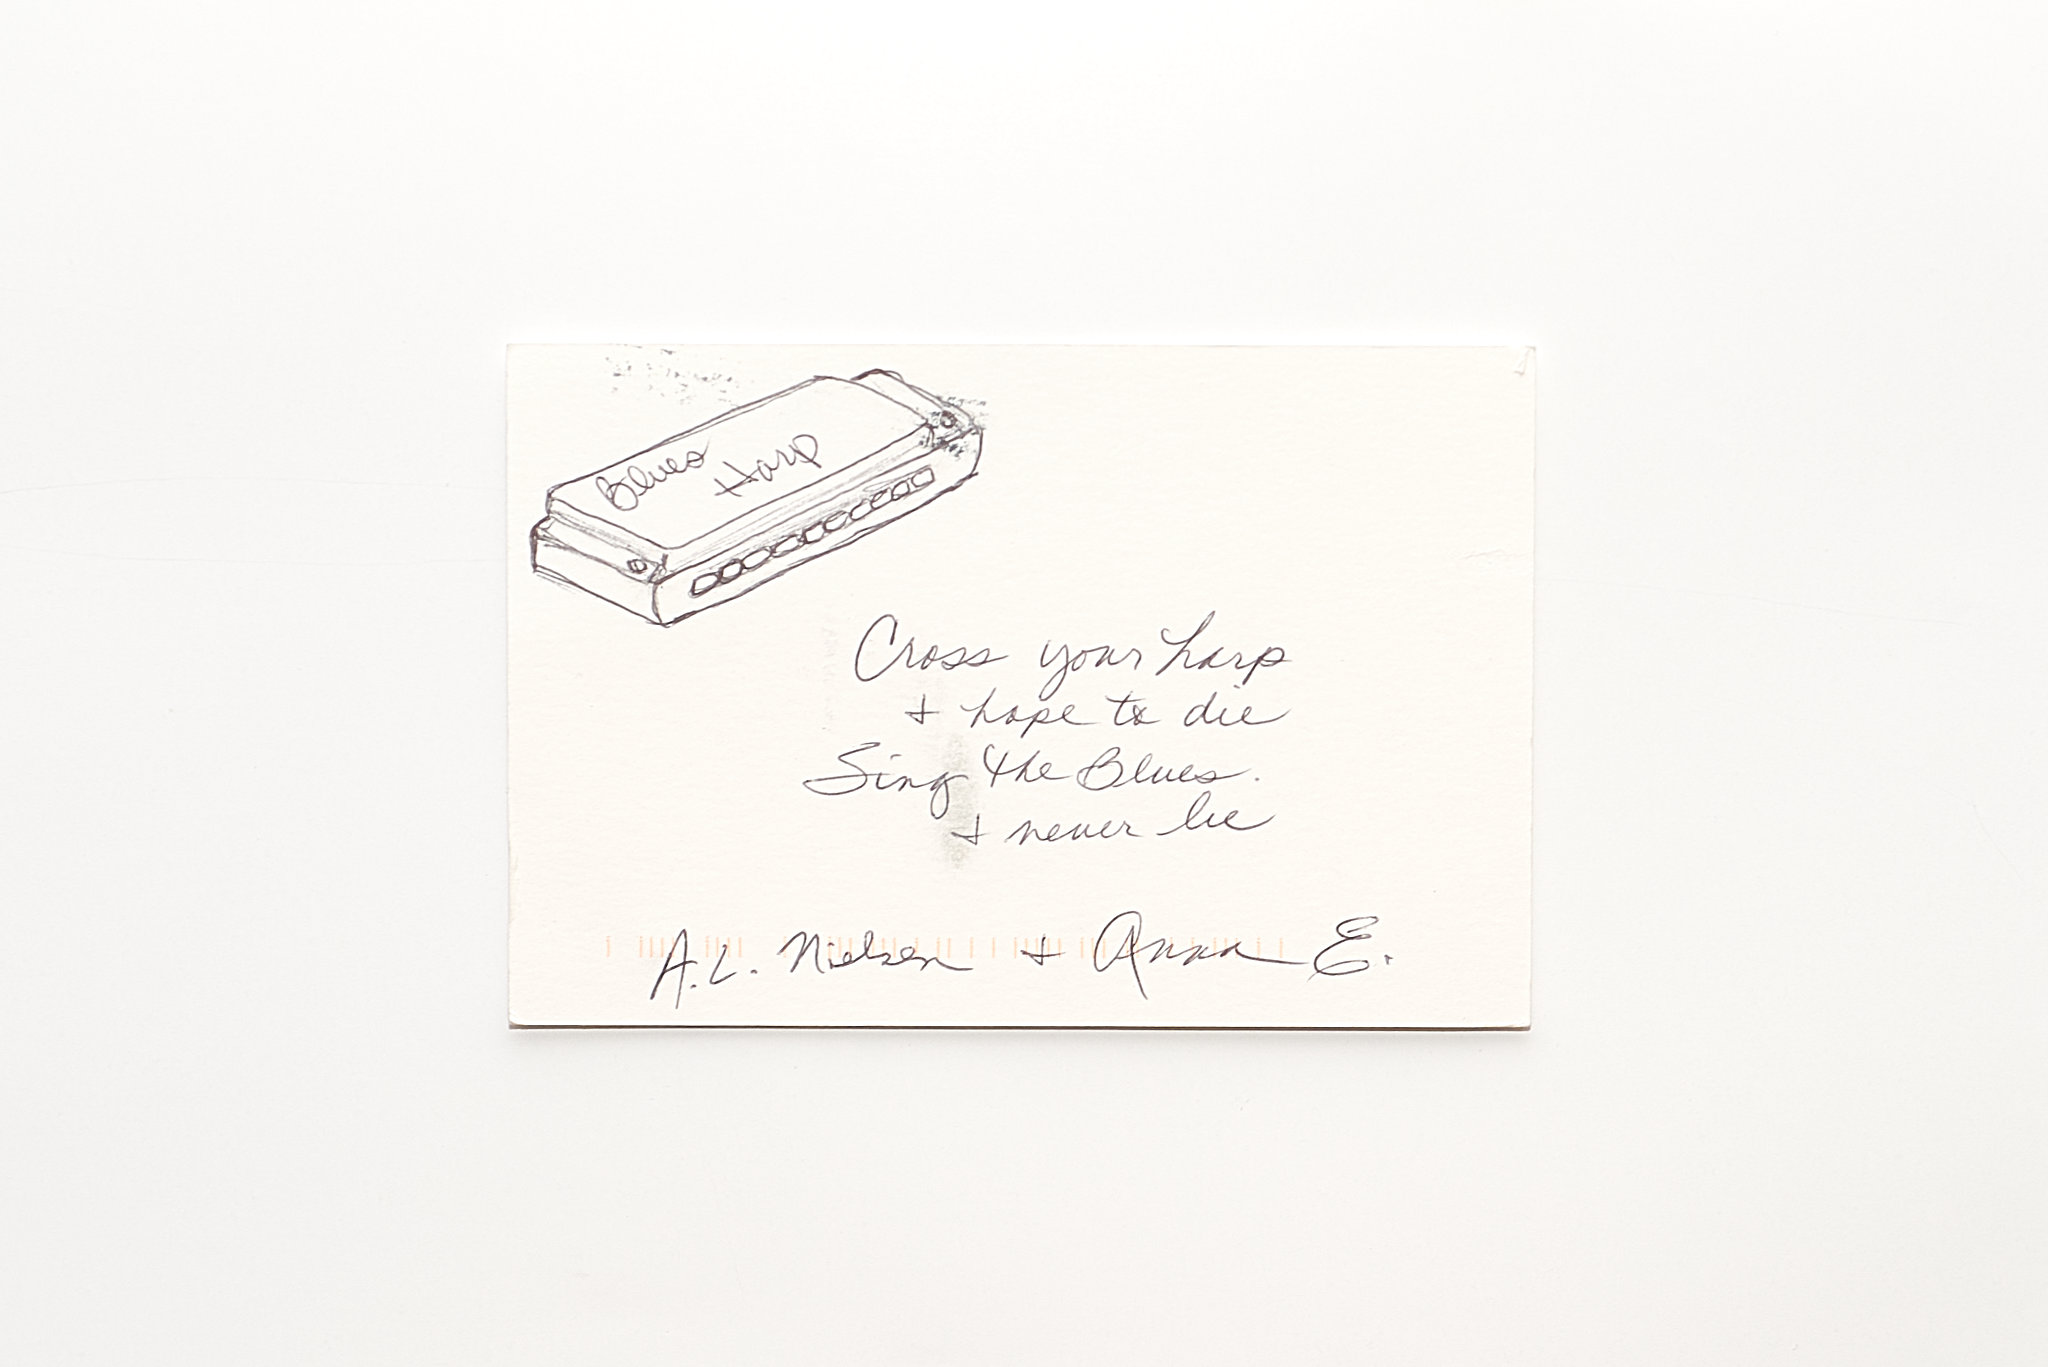 Blues Harp
Cross your harp
+ hope to die
Sing the Blues.
+ never lie
A.L. Nielsen + Anna E.